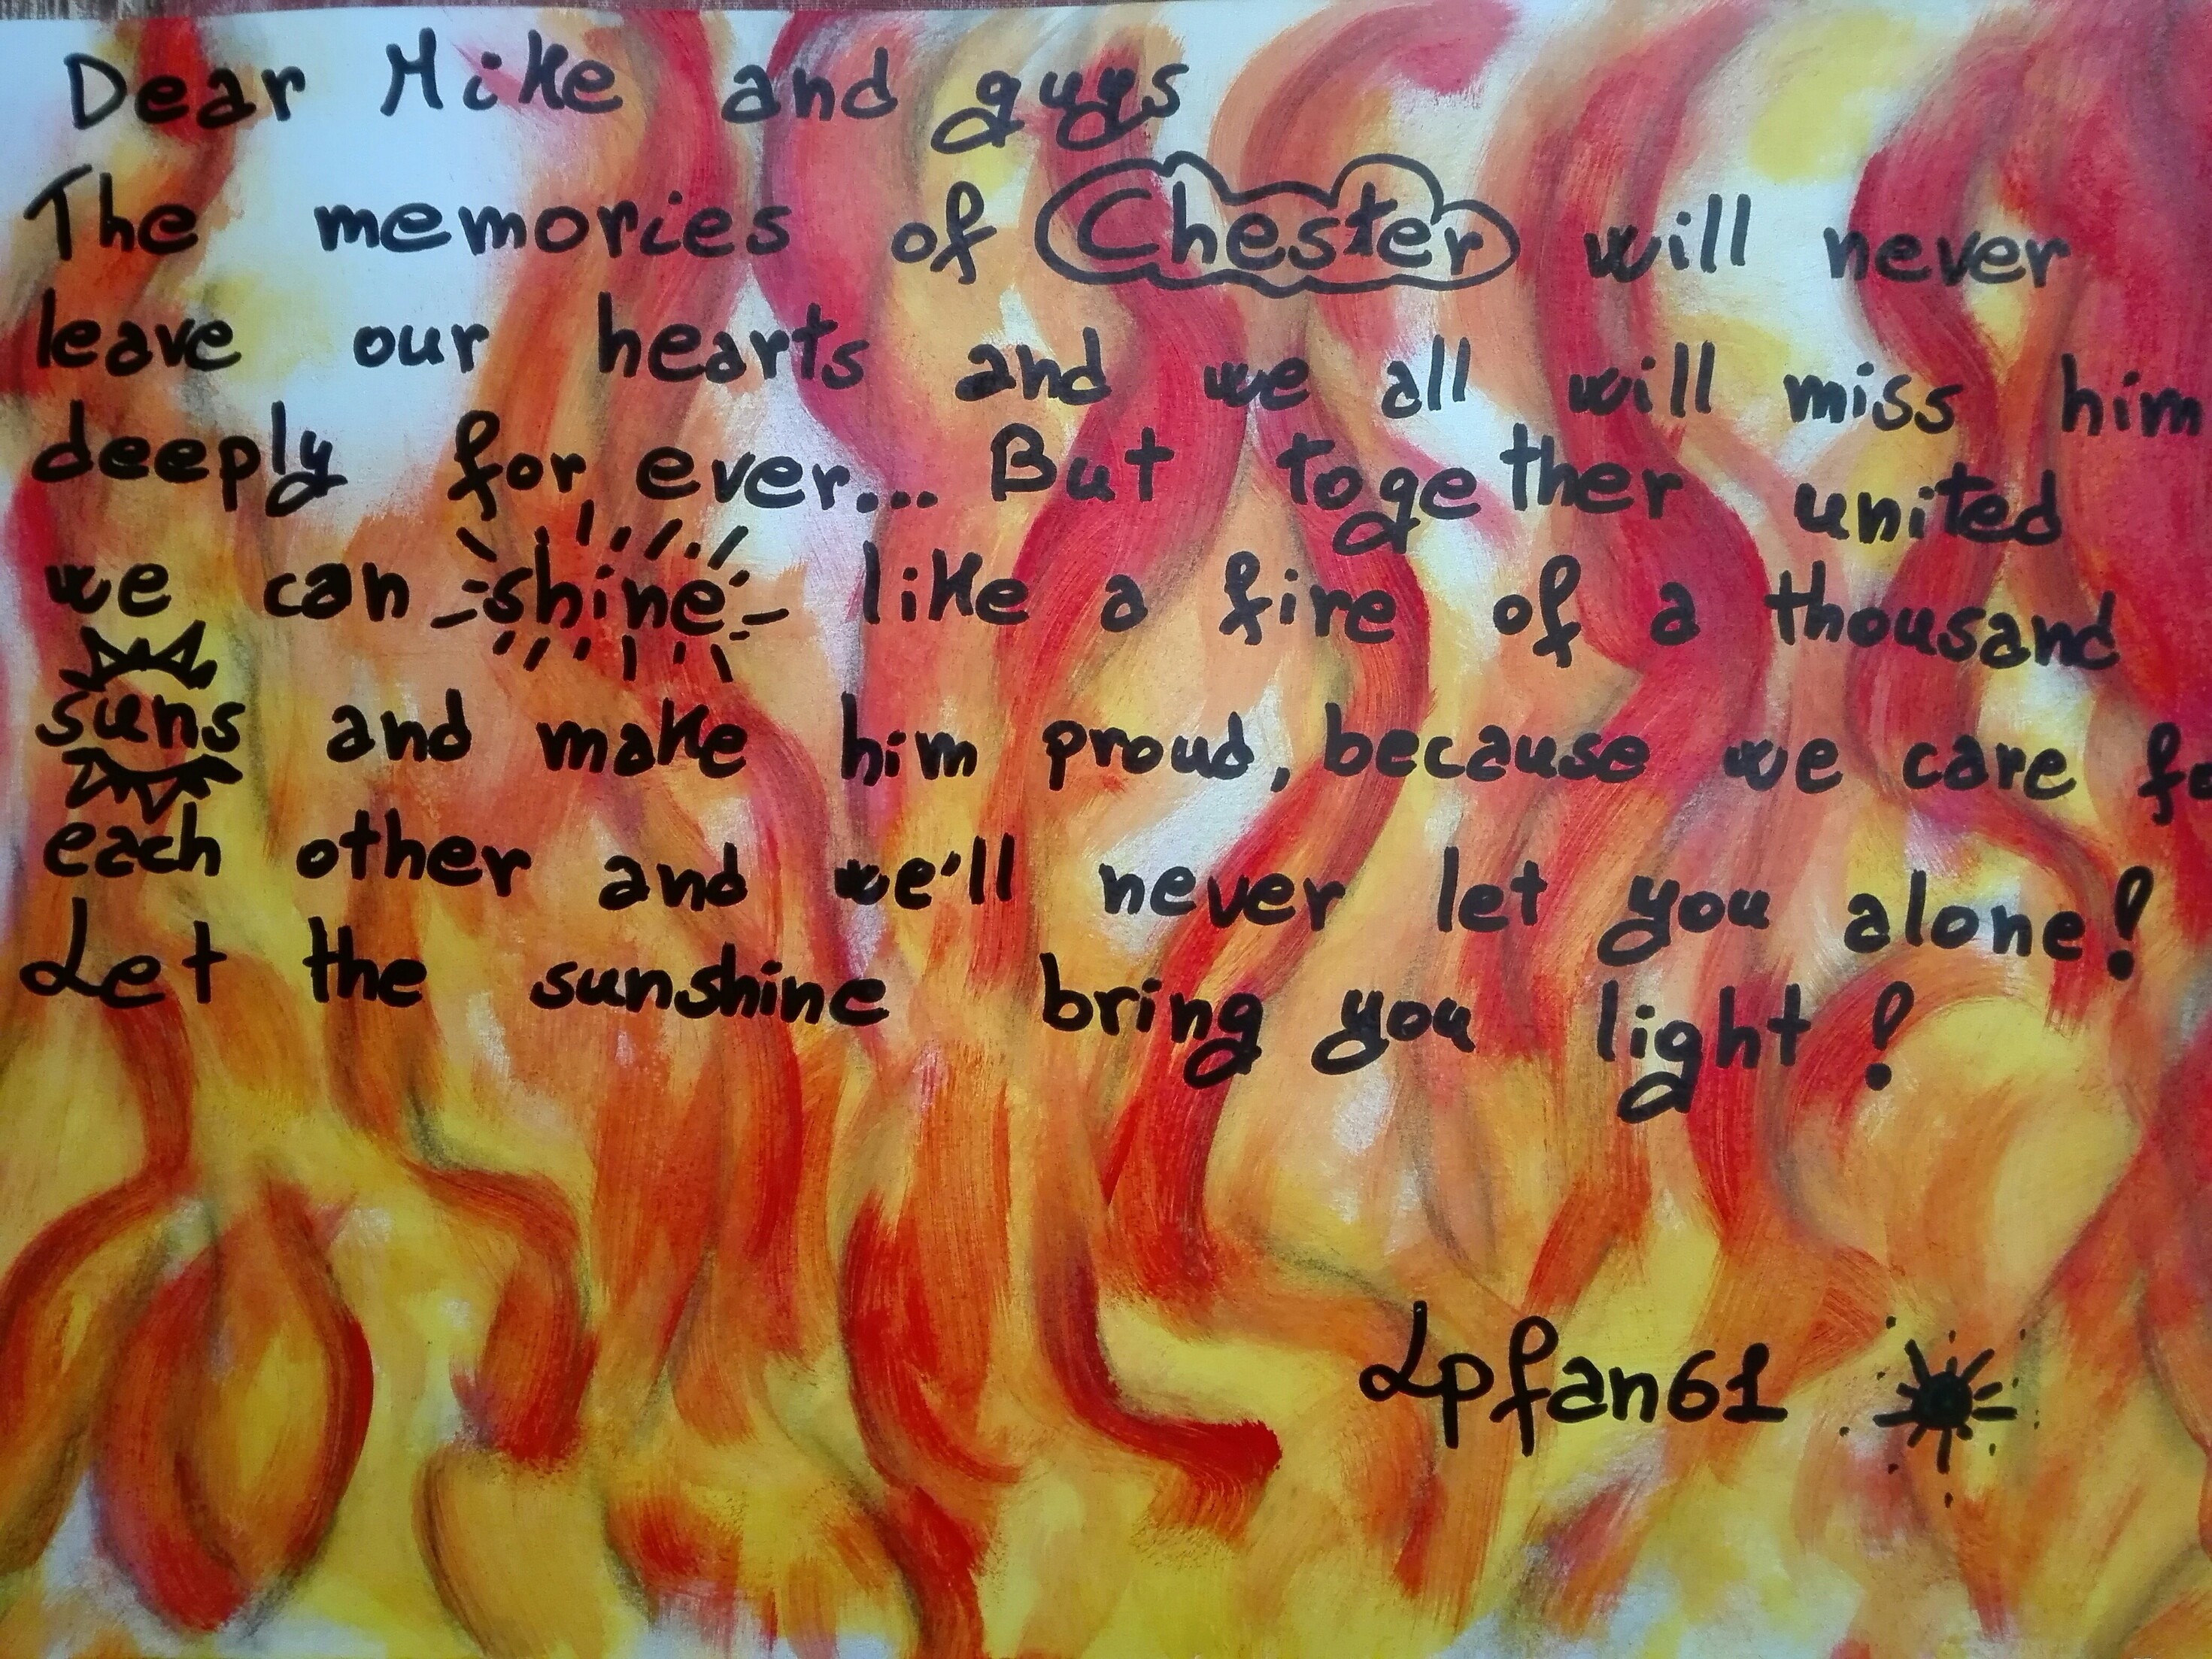 Dear Mike and guys
The memories of Chester will never
leave our hearts and we all will miss him
deeply for ever... But together united
we can shine like a fire of a thousand
suns and make him proud, because we care fo
each other and we'll never let you alone!
Let the sunshine bring you light!
Lpfan61